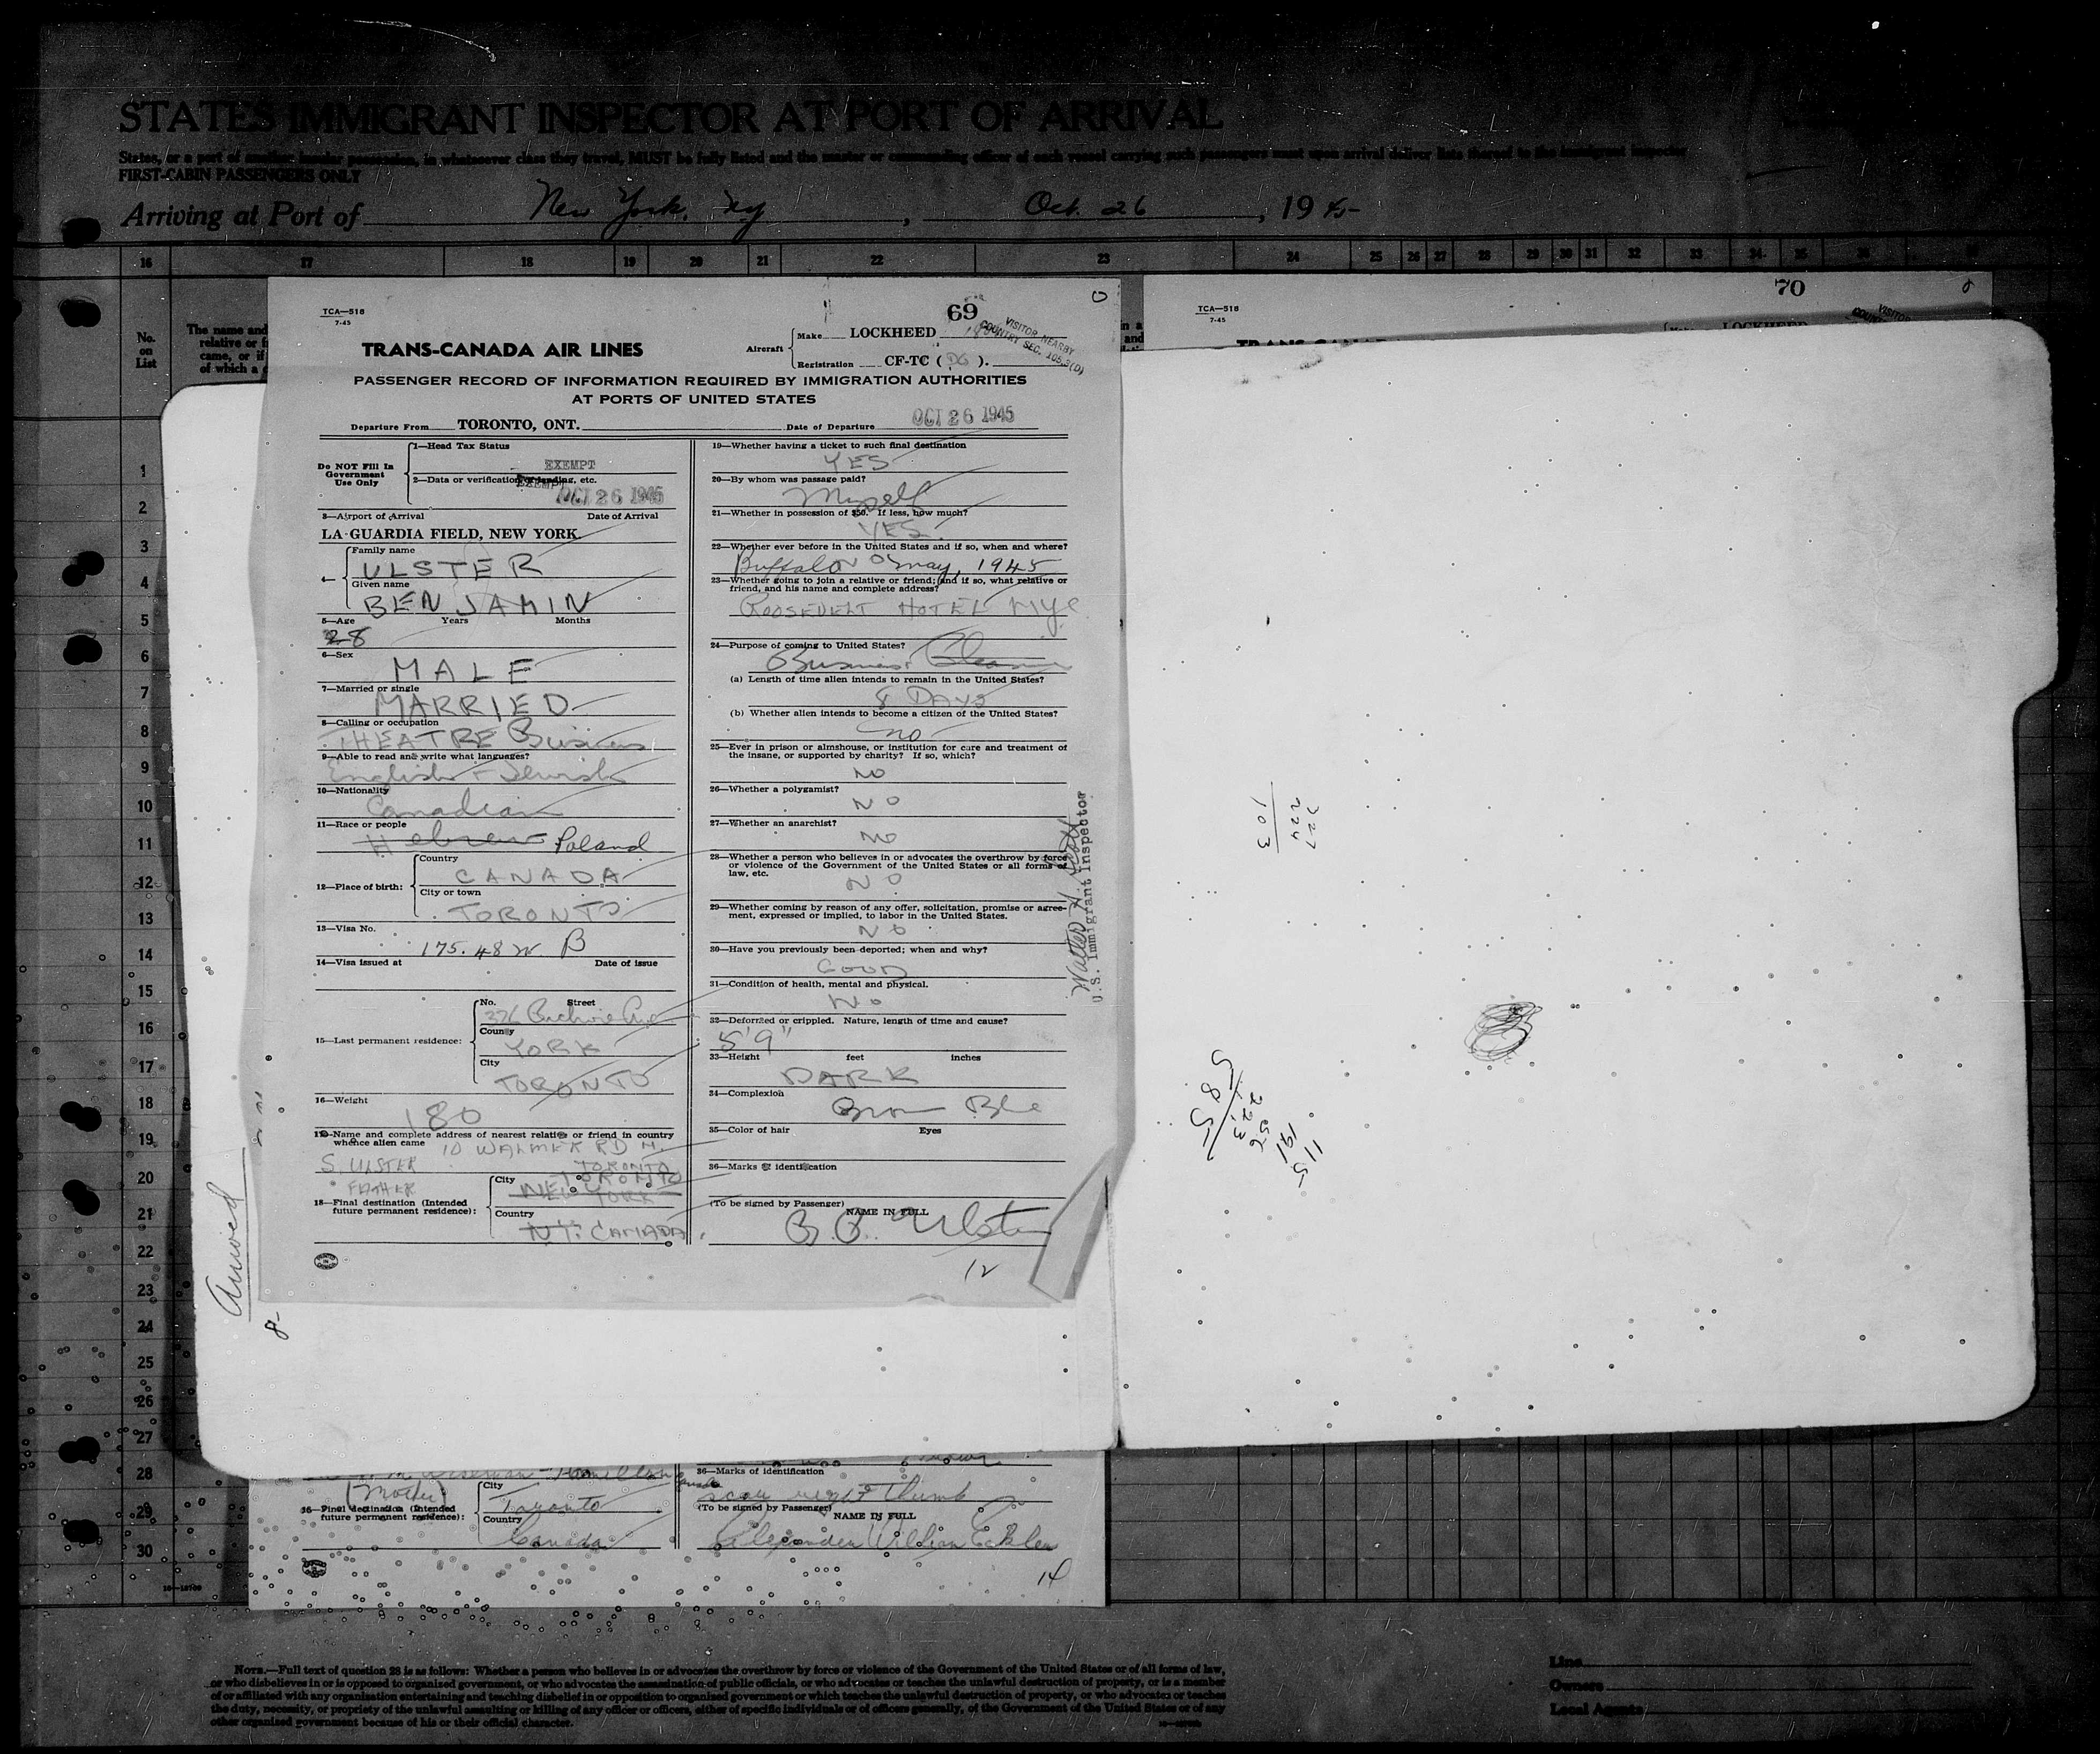 STATES IMMIGRANT INSPECTOR AT PORT OF ARRIVAL
States, or a port of another insular possession, in whatsoever class they travel, MUST be fully listed and the master or commanding officer of each vessel carrying such passengers must upon arrival deliver lists thereof to the immigrant inspector
FIRST-CABIN PASSENGERS ONLY
Arriving at Port of New York, Ny, Oct. 26, 1945
16 17 18 19 20 21 22 23 24 25 26 27 28 29 30 31 32 33 34 35 36
No. on List
The name and
relative or f
came, or if
of which a c
1
2
3
4
5
6
7
8
9
10
11
12
13
14
15
16
17
18
19
20
21
22
23
24
25
26
27
28
29
30
TCA—518
7-45
69
0
VISITOR NEARBY
COUNTRY SEC. 105.3(D)
TRANS-CANADA AIR LINES
Aircraft
Make LOCKHEED
Registration CF-TC ( DG ).
PASSENGER RECORD OF INFORMATION REQUIRED BY IMMIGRATION AUTHORITIES
AT PORTS OF UNITED STATES
Departure From TORONTO, ONT. Date of Departure OCT 26 1945
Do NOT Fill In
Government
Use Only
1—Head Tax Status
EXEMPT
2—Data or verification of landing, etc.
EXEMPT
OCT 26 1945
3—Airport of Arrival Date of Arrival
LA GUARDIA FIELD, NEW YORK
4—
Family name
ULSTER
Given name
BENJAMIN
5—Age Years Months
28
6—Sex
MALE
7—Married or single
MARRIED
8—Calling or occupation
THEATRE Business
9—Able to read and write what languages?
English + Jewish
10—Nationality
Canadian
11—Race or people
Hebrew Poland
12—Place of birth:
Country
CANADA
City or town
TORONTO
13—Visa No.
175.48 W. B
14—Visa issued at Date of issue
15—Last permanent residence:
No. Street
376
County
YORK
City
TORONTO
16—Weight
180
17—Name and complete address of nearest relative or friend in country
whence alien came 10 WALMER RD
S. ULSTER TORONTO
FATHER
18—Final destination (Intended
future permanent residence):
City TORONTO
NEW YORK
Country
N.Y. CANADA
19—Whether having a ticket to such final destination
YES
20—By whom was passage paid?
Myself
21—Whether in possession of $50. If less, how much?
YES.
22—Whether ever before in the United States and if so, when and where?
Buffalo May, 1945
23—Whether going to join a relative or friend; and if so, what relative or
friend, and his name and complete address?
ROOSEVELT HOTEL NYC
24—Purpose of coming to United States?
Business Pleasure
(a) Length of time alien intends to remain in the United States?
8 DAYS
(b) Whether alien intends to become a citizen of the United States?
no
25—Ever in prison or almshouse, or institution for care and treatment of
the insane, or supported by charity? If so, which?
NO
26—Whether a polygamist?
NO
27—Whether an anarchist?
NO
28—Whether a person who believes in or advocates the overthrow by force
or violence of the Government of the United States or all forms of
law, etc.
NO
29—Whether coming by reason of any offer, solicitation, promise or agree-
ment, expressed or implied, to labor in the United States.
NO
30—Have you previously been deported; when and why?
GOOD
31—Condition of health, mental and physical.
NO
32—Deformed or crippled. Nature, length of time and cause?
5'9"
33—Height feet inches
DARK
34—Complexion
Brown Blue
35—Color of hair Eyes
36—Marks of identification
(To be signed by Passenger) NAME IN FULL
B. Ulster
12
Walter H. Scott
U.S. Immigrant Inspector
Arrived
8-
TCA—518
7-45
70
LOCKHEED
227
224
103
223
56
191
115
585
Hamilton
(Mother)
18—Final destination (Intended
future permanent residence):
City
Toronto
Country
Canada
36—Marks of identification
scar right thumb
(To be signed by Passenger)
NAME IN FULL
Alexander William Eckler
14
NOTE.—Full text of question 28 is as follows: Whether a person who believes in or advocates the overthrow by force or violence of the Government of the United States or of all forms of law,
or who disbelieves in or is opposed to organized government, or who advocates the assassination of public officials, or who advocates or teaches the unlawful destruction of property, or is a member
of or affiliated with any organization entertaining and teaching disbelief in or opposition to organized government or which teaches the unlawful destruction of property, or who advocates or teaches
the duty, necessity, or propriety of the unlawful assaulting or killing of any officer or officers, either of specific individuals or of officers generally, of the Government of the United States or of any
other organized government because of his or their official character.
Line
Owners
Local Agents